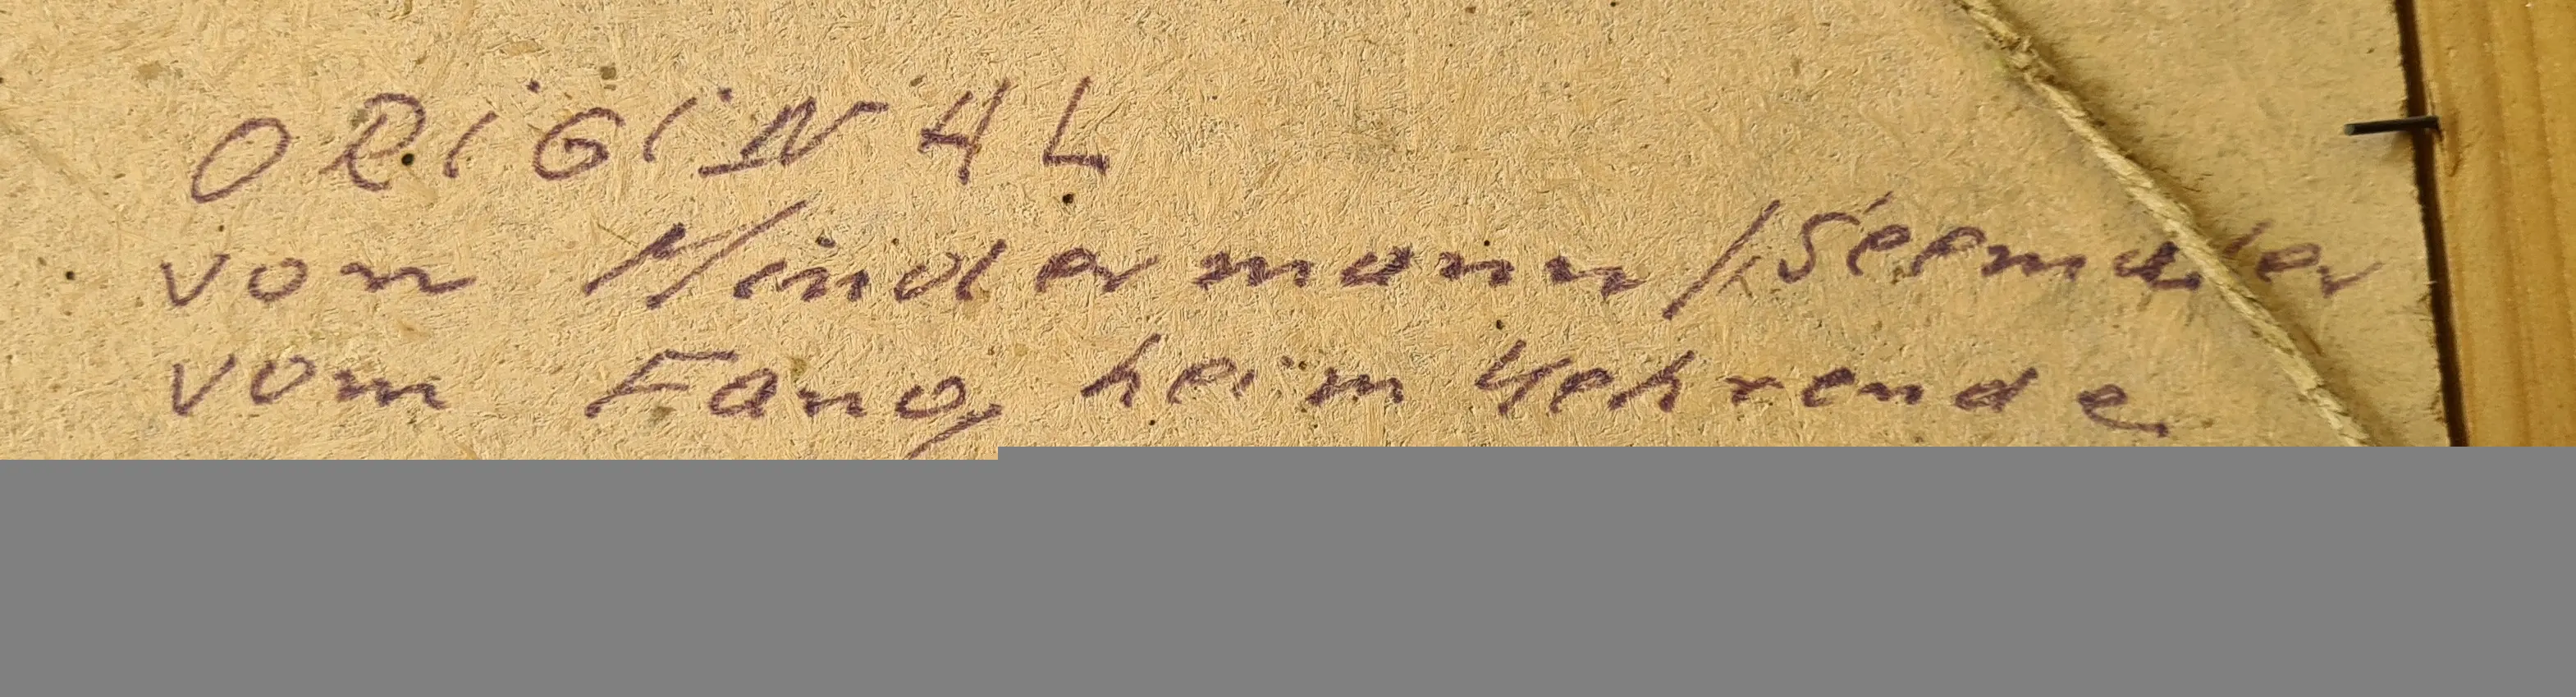 ORiGiNAL
von Mindermann / Seemaler
vom Fang heim kehrende